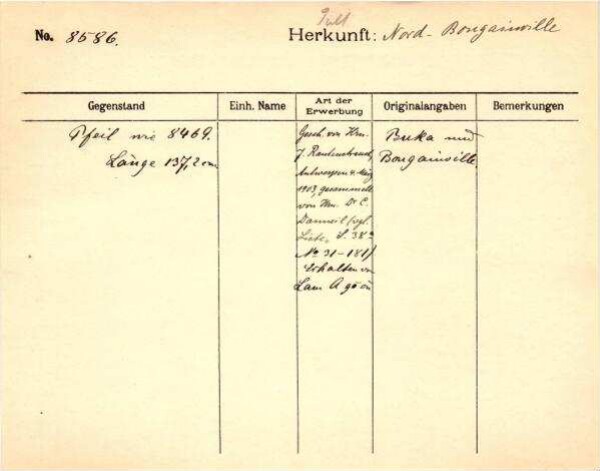 No. 8586.
Herkunft: Nord-Bougainville
Gegenstand
Einh. Name
Art der
Erwerbung
Originalangaben
Bemerkungen
Pfeil wie 8469.
Länge 137,2 cm
Gesch. von Hrn.
J. Rautenstrauch,
Antwerpen
1913, gesammelt
von Hrn. Dr. C.
Danneil (vgl.
Liste, S. 38
No 31-181)
Erhalten von
Lam
Buka und
Bougainville.